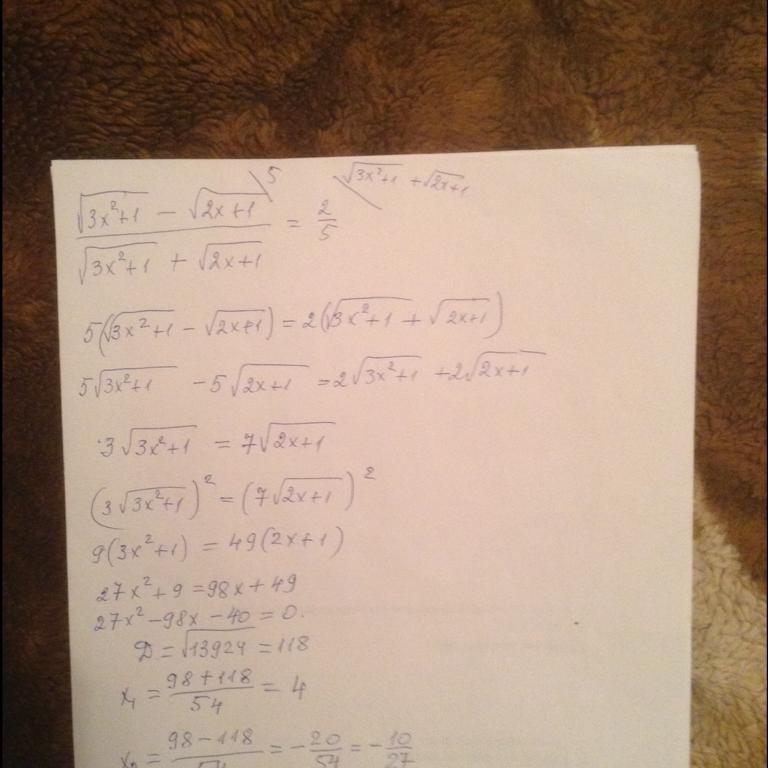 \5 \√3x²+1 + √2x+1
(√3x²+1 − √2x+1)/(√3x²+1 + √2x+1) = 2/5
5(√3x²+1 − √2x+1) = 2(√3x²+1 + √2x+1)
5√3x²+1 − 5√2x+1 = 2√3x²+1 + 2√2x+1
3√3x²+1 = 7√2x+1
(3√3x²+1)² = (7√2x+1)²
9(3x²+1) = 49(2x+1)
27x²+9 = 98x+49
27x²−98x−40 = 0.
D = √13924 = 118
x₁ = (98+118)/54 = 4
x₂ = (98−118)/54 = −20/54 = −10/27